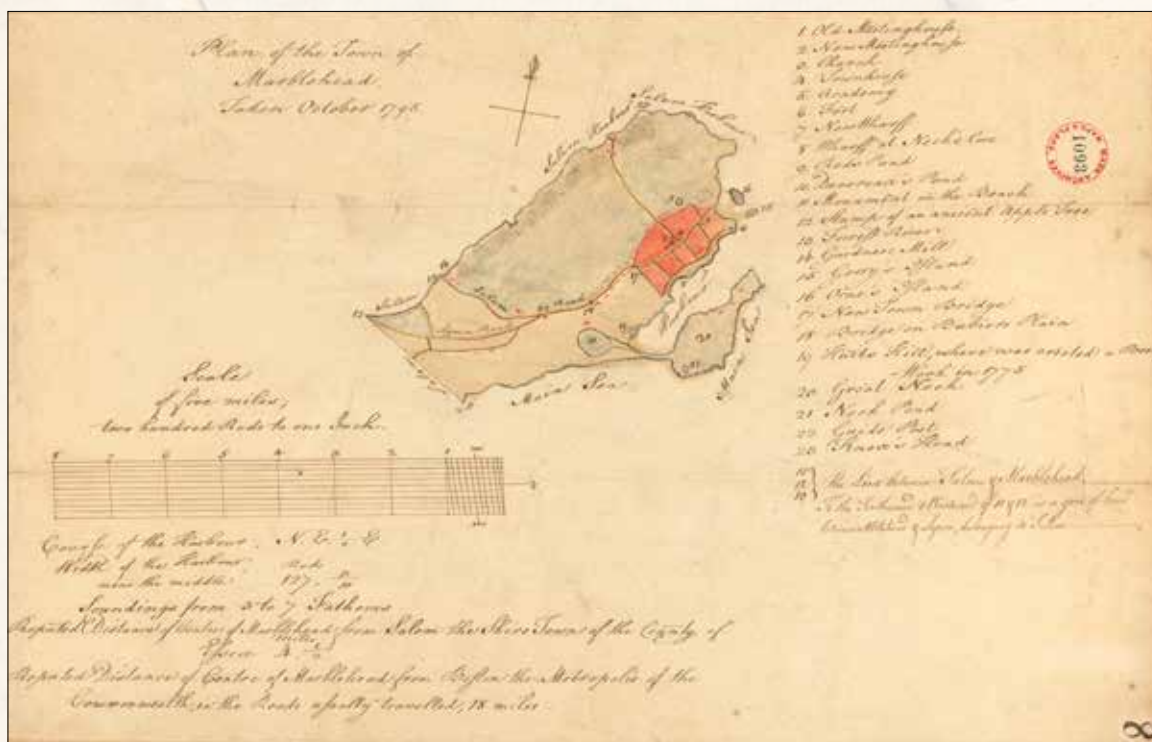 Plan of the Town of
Marblehead.
Taken October 1795.
Salem Harbour
Main Sea
Main Sea
Scale
of five miles,
two hundred Rods to one Inch.
8 7 6 5 4 3 2 1
Course of the Harbour. N. E.
Width of the Harbour, Rods
near the middle 127.
Soundings from 3 to 7 Fathoms
Reputed Distance of Centre of Marblehead from Salem the Shire Town of the County of
Essex 4 miles
Reputed Distance of Centre of Marblehead from Boston the Metropolis of the
Commonwealth, in the Route usually travelled, 18 miles.
1 Old Meetinghouse
2 New Meetinghouse
3 Church
4 Townhouse
5 Academy
6 Fort
7 New Wharff
8 Wharff at Neck's Cove
9 Pond
10 Devereux's Pond
11 Monument in the Beach
12 Stump of an ancient Apple Tree
13 Forest River
14 Gardner's Mill
15 Gerry's Island
16 Orne's Island
17 New Town Bridge
18 Bridge on Plain
19 Hill, where was erected a
in 1775
20 Great Neck
21 Neck Pond
22 Guide Post
23 Head
the Line between Salem & Marblehead
1098
8